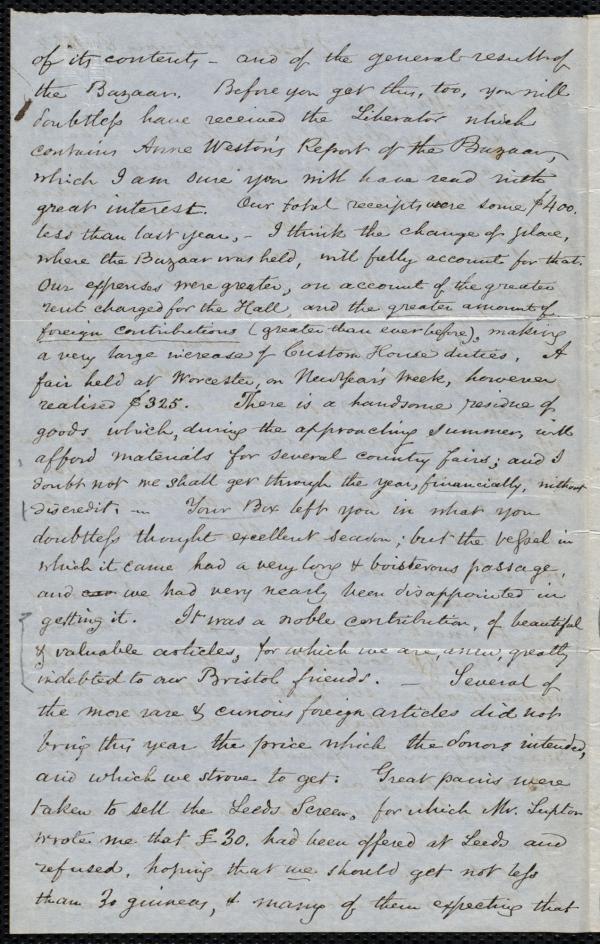 of its contents, - and of the general result of
the Bazaar. Before you get this, too, you will
doubtless have received the Liberator which
contains Anne Weston's Report of the Bazaar,
which I am sure you will have read with
great interest. Our total receipts were some $400.
less than last year, - I think the change of place,
where the Bazaar was held, will fully account for that.
Our expenses were greater, on account of the greater
rent charged for the Hall, and the greater amount of
foreign contributions (greater than ever before), making
a very large increase of Custom House duties. A
fair held at Worcester, on New Year's Week, however
realised $325. There is a handsome residue of
goods which, during the approaching summer, will
afford materials for several country fairs; and I
doubt not we shall get through the year, financially, without
discredit. - Your Box left you in what you
doubtless thought excellent season; but the vessel in
which it came had a very long & boisterous passage,
and we had very nearly been disappointed in
getting it. It was a noble contribution, of beautiful
& valuable articles, for which we are, anew, greatly
indebted to our Bristol friends. - Several of
the more rare & curious foreign articles did not
bring this year the price which the donors intended,
and which we strove to get. Great pains were
taken to sell the Leeds Screen, for which Mr. Lupton
wrote me that £30. had been offered at Leeds and
refused, hoping that we should get not less
than 30 guineas, & many of them expecting that